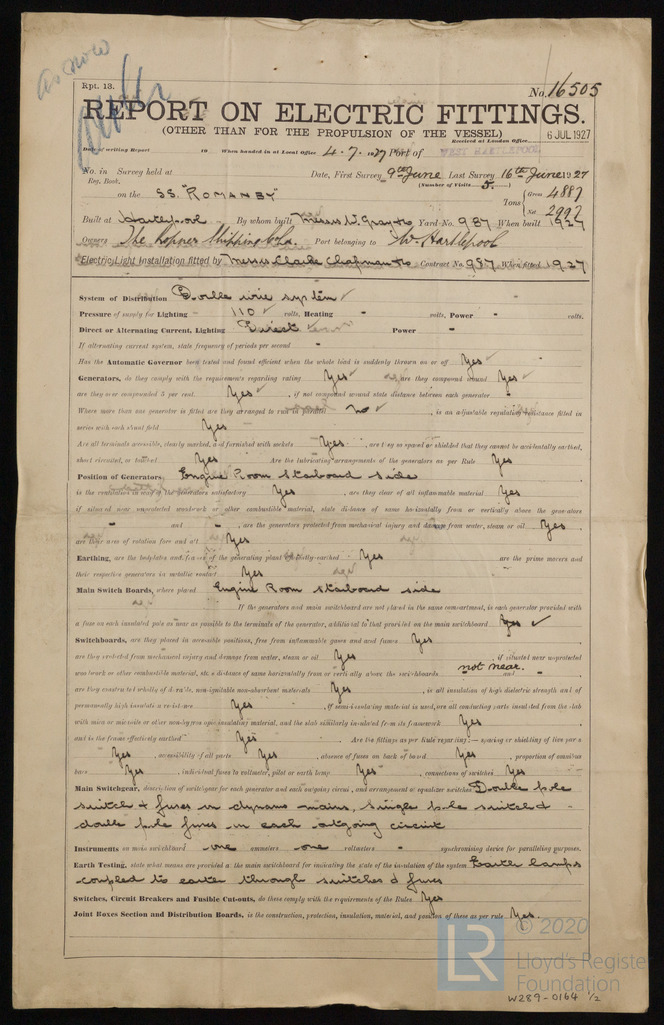 as now
Rpt. 13.
No. 16505
REPORT ON ELECTRIC FITTINGS.
(OTHER THAN FOR THE PROPULSION OF THE VESSEL)
Received at London Office 6 JUL 1927
Date of writing Report 19 When handed in at Local Office 4.7.1927 Port of WEST HARTLEPOOL
No. in Reg. Book. Survey held at Date, First Survey 9th June Last Survey 16th June 1927
(Number of Visits 5.)
on the SS. "ROMANBY" Tons { Gross 4887
Net 2992
Built at Hartlepool By whom built Messrs W. Gray & Co Yard No. 987 When built 1927
Owners The Ropner Shipping Co Ld. Port belonging to W. Hartlepool
Electric Light Installation fitted by Messrs Clarke Chapman & Co Contract No. 987 When fitted 1927
System of Distribution Double wire system ✓
Pressure of supply for Lighting 110 ✓ volts, Heating - volts, Power - volts.
Direct or Alternating Current, Lighting Direct ✓ Power -
If alternating current system, state frequency of periods per second -
Has the Automatic Governor been tested and found efficient when the whole load is suddenly thrown on or off Yes ✓
Generators, do they comply with the requirements regarding rating Yes ✓ are they compound wound Yes ✓
are they over compounded 5 per cent. Yes ✓, if not compound wound state distance between each generator -
Where more than one generator is fitted are they arranged to run in parallel no ✓, is an adjustable regulating resistance fitted in
series with each shunt field Yes
Are all terminals accessible, clearly marked, and furnished with sockets Yes, are they so spaced or shielded that they cannot be accidentally earthed,
short circuited, or touched Yes Are the lubricating arrangements of the generators as per Rule Yes
Position of Generators Engine Room Starboard side
is the ventilation in way of the generators satisfactory Yes, are they clear of all inflammable material Yes
if situated near unprotected woodwork or other combustible material, state distance of same horizontally from or vertically above the generators
- and -, are the generators protected from mechanical injury and damage from water, steam or oil Yes,
are their axes of rotation fore and aft Yes
Earthing, are the bedplates and frames of the generating plant efficiently earthed Yes are the prime movers and
their respective generators in metallic contact Yes
Main Switch Boards, where placed Engine Room Starboard side
If the generators and main switchboard are not placed in the same compartment, is each generator provided with
a fuse on each insulated pole as near as possible to the terminals of the generator, additional to that provided on the main switchboard Yes ✓
Switchboards, are they placed in accessible positions, free from inflammable gases and acid fumes Yes
are they protected from mechanical injury and damage from water, steam or oil Yes, if situated near unprotected
woodwork or other combustible material, state distance of same horizontally from or vertically above the switchboards not near. and
are they constructed wholly of durable, non-ignitable non-absorbent materials Yes, is all insulation of high dielectric strength and of
permanently high insulation resistance Yes, If semi-insulating material is used, are all conducting parts insulated from the slab
with mica or micanite or other non-hygroscopic insulating material, and the slab similarly insulated from its framework Yes
and is the frame effectively earthed Yes Are the fittings as per Rule regarding:— spacing or shielding of live parts
Yes, accessibility of all parts Yes, absence of fuses on back of board Yes, proportion of omnibus
bars Yes, individual fuses to voltmeter, pilot or earth lamp Yes, connections of switches Yes
Main Switchgear, description of switchgear for each generator and each outgoing circuit, and arrangement of equalizer switches Double pole
switch & fuses in dynamo mains, single pole switch &
double pole fuses in each outgoing circuit
Instruments on main switchboard one ammeters one voltmeters - synchronising device for paralleling purposes.
Earth Testing, state what means are provided at the main switchboard for indicating the state of the insulation of the system Earth lamps
coupled to earth through switches & fuses
Switches, Circuit Breakers and Fusible Cut-outs, do these comply with the requirements of the Rules Yes
Joint Boxes Section and Distribution Boards, is the construction, protection, insulation, material, and position of these as per rule Yes.
© 2020
LR
Lloyd's Register
Foundation
W289-0164 1/2